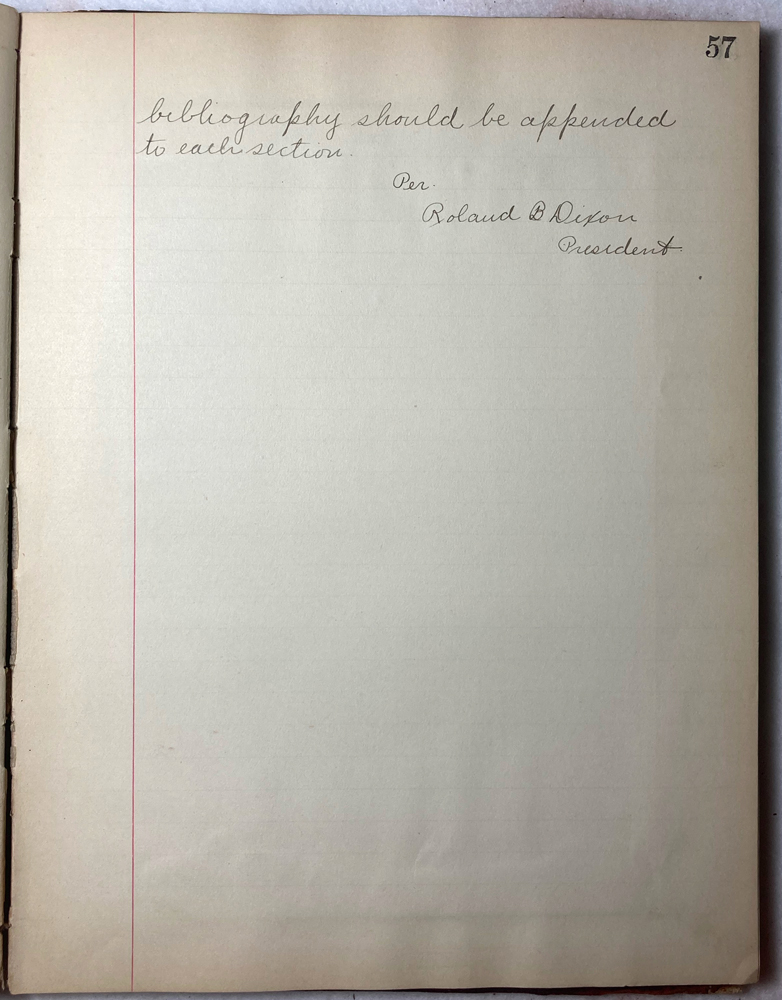 57
bibliography should be appended
to each section.
Per.
Roland B Dixon
President.